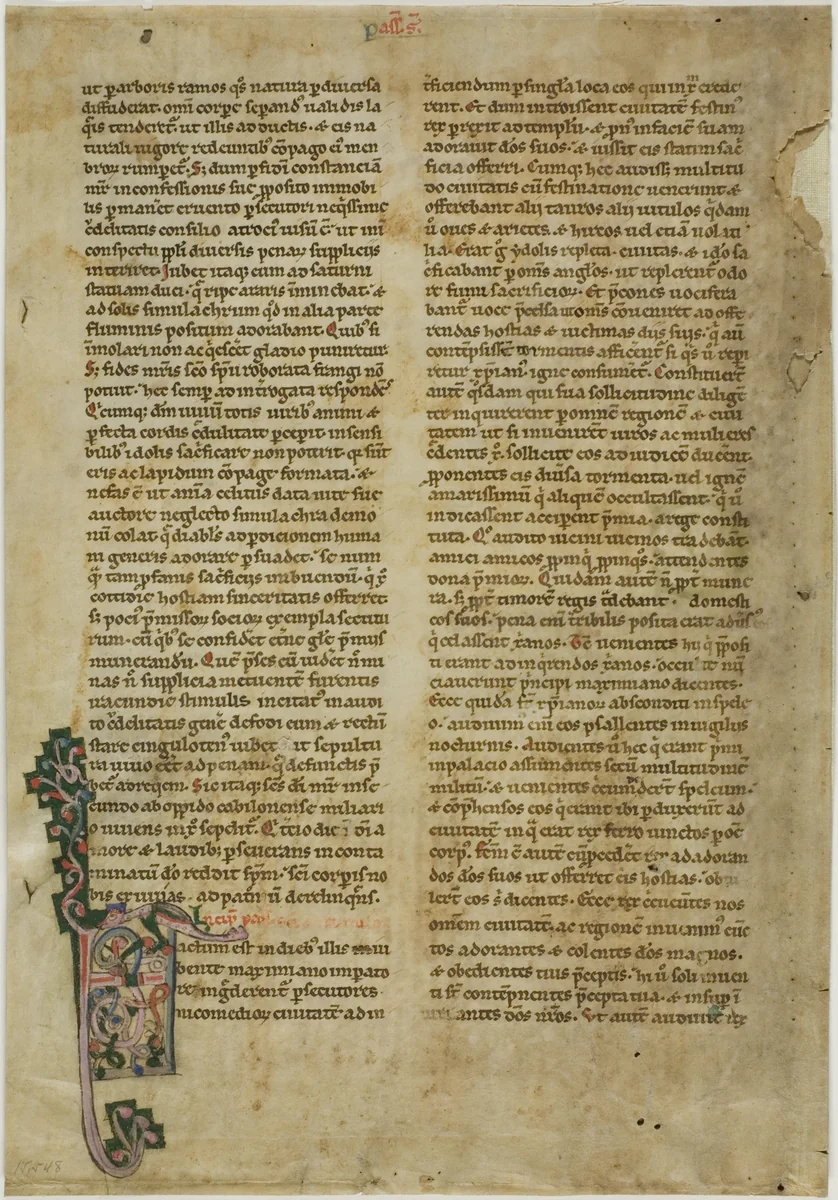 pass s.
ut p arboris ramos qͥs natura p diuersa
diffuderat. omi corpe sepandͦ ualidis la
q̄is tenderet. ut illis adductis. & eis na
turali uigore redeuntibꝰ cōpago ei mem
broꝝ rumpet. Sꝫ dum p fidei constanciā
mr̄ in confessionis sue pposito immobi
lis pmanet cruento psecutori neqissime
c̄delitatis consilio atroci iusū ē. ut in
conspectu ppli diuersis penaꝝ suppliciis
interiret. Iubet itaqꝫ eum ad saturni
statuam duci. q̄ ripe araris īminebat. &
ad solis simulachrum qd in alia parte
fluminis positum adorabant. Quibꝰ si
īmolari non acqͥesceret gladio puniretur.
Sꝫ fides mr̄is sc̄o sp̄u roborata frangi nō
potuit. hec semp ad introgata respondēs
Qͥcumqꝫ dm̄ uiuū totis uiribꝰ animi &
pfecta cordis c̄dulitate pcepit. insensi
bilibꝰ idolis sac̄ficare non poterit. q̄ sūt
eris ac lapidum cōpage formata. &
nefas ē ut anīa celitus data uite sue
auctore neglecto simulachra demo
nū colat. q̄ diablͦs ad pdicionem huma
ni generis adorare psuadet. se num
qͣ tam pfanis sac̄ficiis imbuendū. qͥ xp̄o
cottidie hostiam sinceritatis offerret.
sꝫ pociͦ p̄missoꝝ socioꝝ exempla secutu
rum. cū qͥbꝰ se confidet et̄ne gl̄e p̄miis
munerandū. Quē p̄ses cū uidet n̄ mi
nas n̄ supplicia metuentē furentis
iracundie stimulis incitatꝰ inaudi
to c̄delitatis gene defodi eum & recti
stare cingulotenꝰ iubet ut sepultu
ra uiuo eēt ad penam. q̄ defunctis p̄
bet ad reqͥem. Sic itaqꝫ sc̄s di mr̄ in se
cundo ab oppido cabilonense miliari
o uiuens in xp̄o sepelit. Qͥ tercio die in di a
more & laudibꝫ pseuerans in conta
minatū do reddit sp̄m. sc̄i corpis no
bis exuuias ad patn̄iū derelinqͣns.
Incip̄ pas
Factum est in diebꝰ illis iu
bente maximiano impato
re ingderent psecutores
nicomedioꝝ ciuitatē ad in
t̄ficiendum p singl̄a loca eos qui in xm̄ crede
rent. Et dum introissent ciuitatē festinꝰ
rex prexit ad templū. & pnꝰ in faciē suam
adorauit dōs suos. & iussit eis statim sac̄
ficia offerri. Cumqꝫ hec audissꝫ multitu
do ciuitatis cū festinatione uenerunt &
offerebant alii tauros alii uitulos qͥdam
ū oues & arietes. & hircos uel etiā uolati
lia. Erat gͦ ydolis repleta ciuitas. & ido sa
c̄ficabant p omēs anglͦos. ut replerent odo
re fumi sacrificioꝝ. Et p̄cones uocifera
bant uoce p̄celsa ut omēs cōuenirēt ad offe
rendas hostias & uictimas diis suis. qͥ aū
contēpsissēt tormentis afficēntͬ. si qͥs ū repi
retur xpianꝰ. igne consumet. Constituerē
autē qͦsdam qui sua sollicitudine diligē
ter inquirerent p omnē regionē & ciui
tatem ut si inuenirēt uiros ac mulieres
c̄dentes xp̄o. sollicite eos ad iudicē ducent.
pponentes eis diūsa tormenta. uel ignē
amarissimū qͥ aliquē occultassent. qͥ ū
indicassent acciperent p̄mia. a rege consti
tuta. Qͦ audito uicini uicinos tradebāt.
amici amicos ppinqͥ ppinqͦs. attendentes
dona p̄mioꝝ. Quidam autē n̄ ppt mune
ra. sꝫ ppt timorē regis t̄debant domesti
cos suos. pena eni t̄ribilis posita erat adūsꝰ
qͥ celassent xr̄anos. Tc̄ uenientes hii qͥ pposi
ti erant ad inqͥrendos xr̄anos. occu it nū
ciauerunt pͥncipi maximiano dicentes.
Ecce quidā st̄ xpianoꝝ absconditi in spele
o. audiuimꝰ eni eos psallentes in uigiliis
nocturnis. Audientes ū hec qͥ erant pͥmi
in palacio assumentes secū multitudinē
militū. & uenientes circumderūt speleum.
& cōp̄hensos eos qͥ erant ibi pduxerūt ad
ciuitatē in qͣ erat rex ferro uinctos p oē
corpꝰ. fc̄m ē autē egpedet rex ad adoran
dos dōs suos ut offerret eis hostias.
lert eos s dicentes. Ecce rex circuentes nos
omem ciuitatē. ac regionē inuenimꝰ cūc
tos adorantes & colentes dōs magnos.
& obedientes tuis p̄ceptis. hii ū soli inuen
ti st̄ contēpnentes p̄cepta tua. & insup i
antes dōs nr̄os. Vt autē audiuit rex